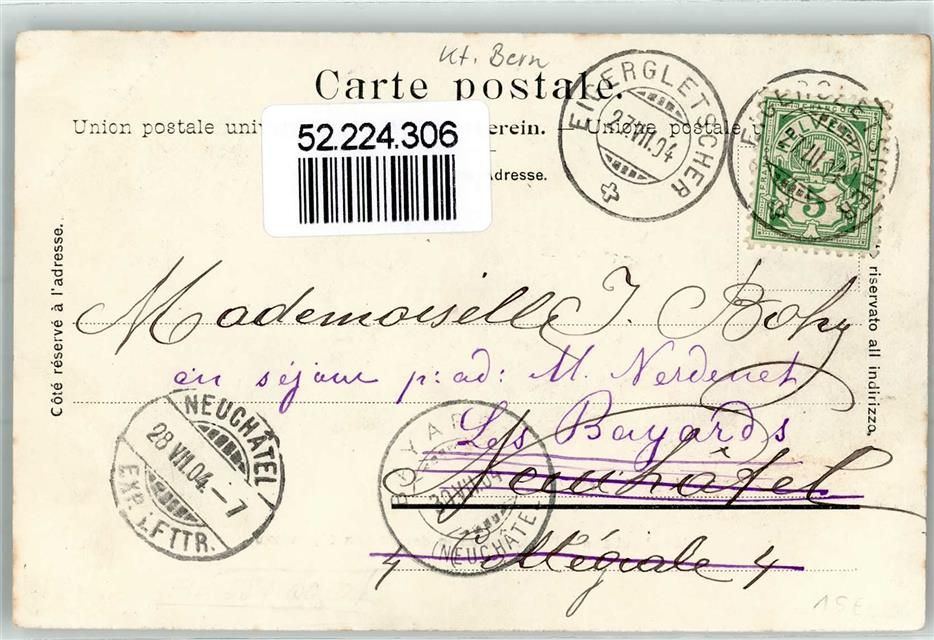 Kt. Bern
Carte postale.
52.224.306
Union postale univ erein. — Unione postale u
Adresse.
Côté réservé à l'adresse.
riservato all indirizzo.
EIGERGLETSCHER
27.VII.04
5
Mademoiselle J. Bohy
en séjour p: ad: M. Nerdenet
Les Bayards
Neuchâtel
4 Collégiale 4
NEUCHÂTEL
28 VII.04.–7
EXP. LETTR.
BAYARDS
VII.04
(NEUCHÂTEL)
15€